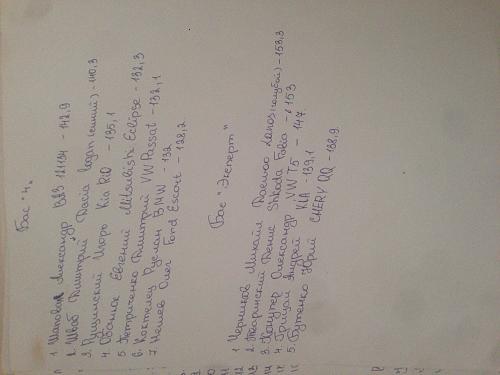 Бас "4"
1. Шаповал Александр ВАЗ 12194 - 142,9
2. Швab Дмитрий Dacia Logan (синий) - 140,3
3. Рущинский Игорь Kia Rio - 135,1
4. Обанюк Евгений Mitsubishi Eclipse - 132,3
5. Петриченко Дмитрий VW Passat - 132,1
6. Коктелец Руслан BMW - 132
7. Нешев Олег Ford Escort - 128,2
Бас "Эксперт"
1. Черников Михайл Daewoo Lanos (голубой) - 153,3
2. Тваринский Денис Shkoda Fabia - 153
3. Кочупер Олександр VW T5 - 147
4. Грицай Андрей KIA - 139,1
5. Бутенко Юрий CHERY QQ - 138,9